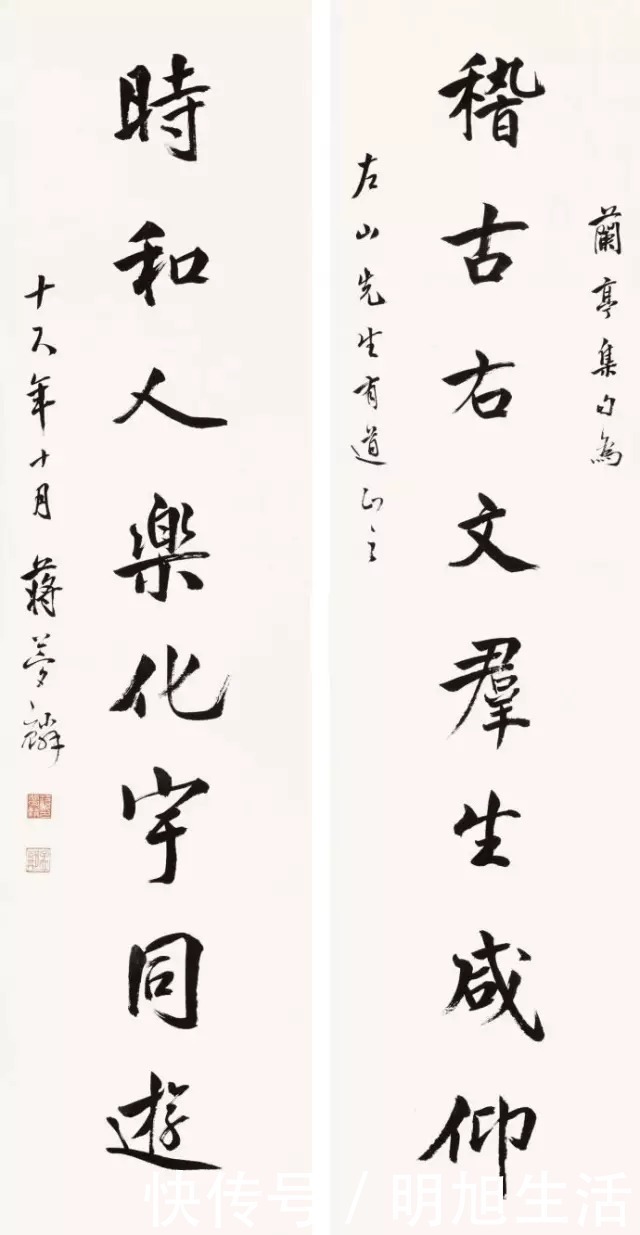 蘭亭集句為
稽古右文羣生咸仰
左山先生有道正之
時和人樂化宇同遊
十八年十月蔣夢麟
快传号/明旭生活